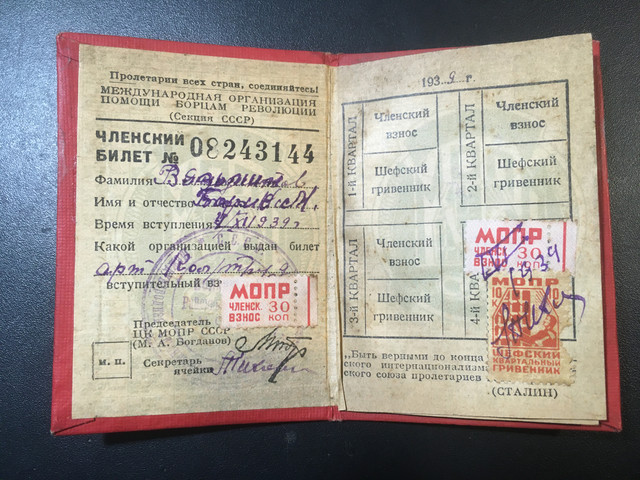 Пролетарии всех стран, соединяйтесь!
МЕЖДУНАРОДНАЯ ОРГАНИЗАЦИЯ
ПОМОЩИ БОРЦАМ РЕВОЛЮЦИИ
(Секция СССР)
ЧЛЕНСКИЙ
БИЛЕТ № 08243144
Фамилия
Имя и отчество
Время вступления XII 1939 г
Какой организацией выдан билет
арт
вступительный вз
МОПР
ЧЛЕНСК. 30
ВЗНОС КОП
Председатель
ЦК МОПР СССР
(М. А. Богданов)
М. П.
Секретарь
ячейки
1939 г.
1-й КВАРТАЛ
Членский
взнос
Шефский
гривенник
2-й КВАРТАЛ
Членский
взнос
Шефский
гривенник
3-й КВАРТАЛ
Членский
взнос
Шефский
гривенник
4-й КВА
МОПР
ЧЛЕНСК. 30
ВЗНОС КОП
МОПР
10 К
ШЕФСКИЙ
КВАРТАЛЬНЫЙ
ГРИВЕННИК
„Быть верными до конца
ского интернационализм
ского союза пролетариев
(СТАЛИН)